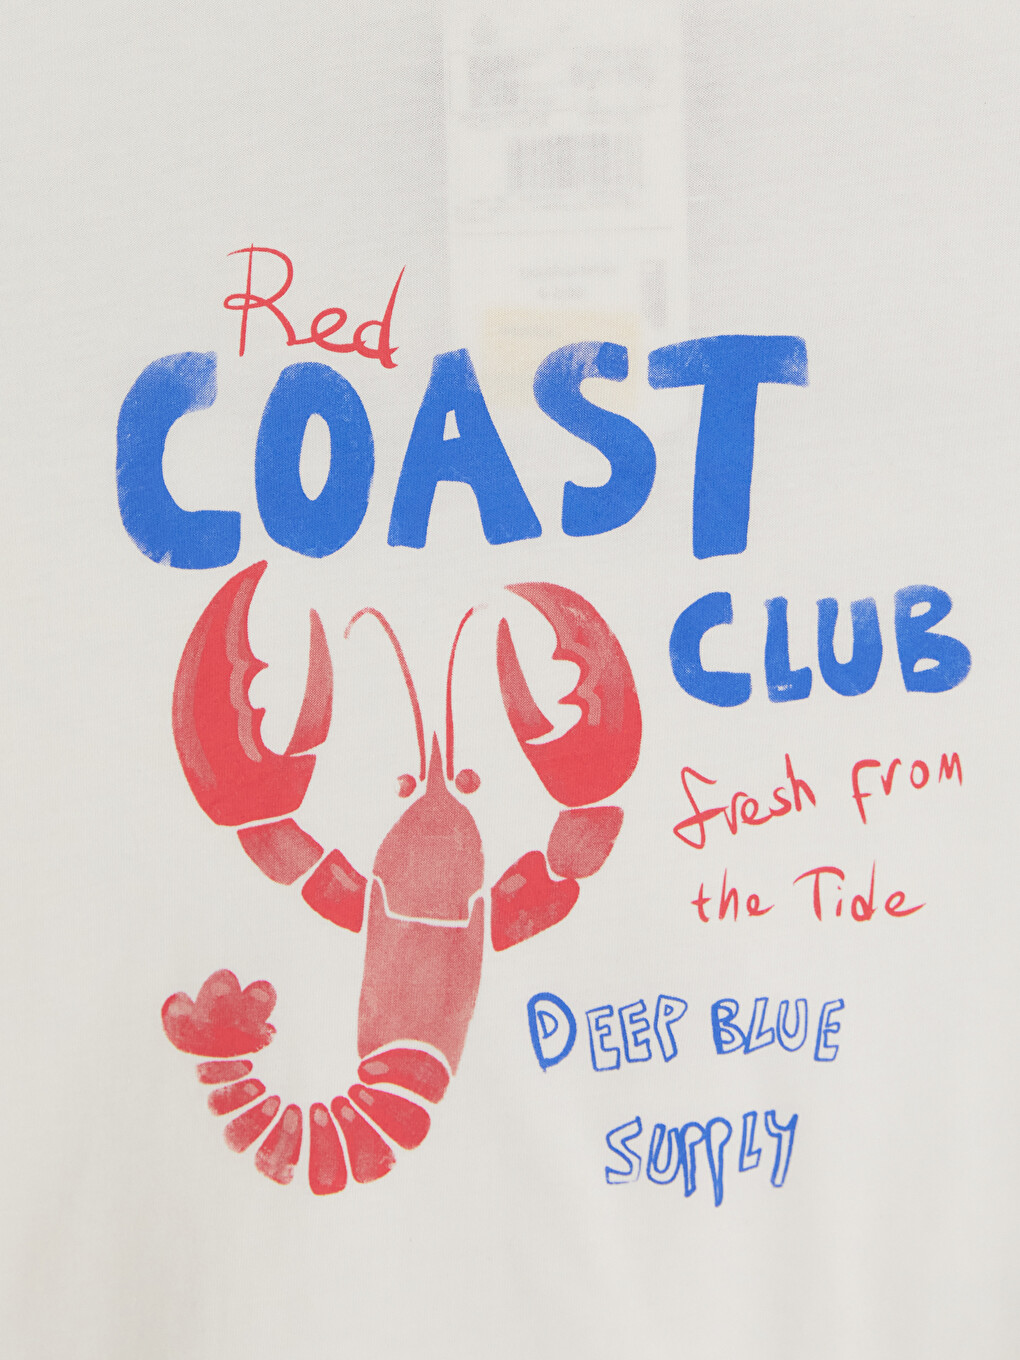 Red
COAST
CLUB
fresh from
the Tide
DEEP BLUE
SUPPLY